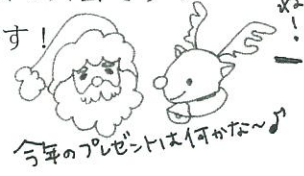 す！
！
今年のプレゼントは何かな〜♪